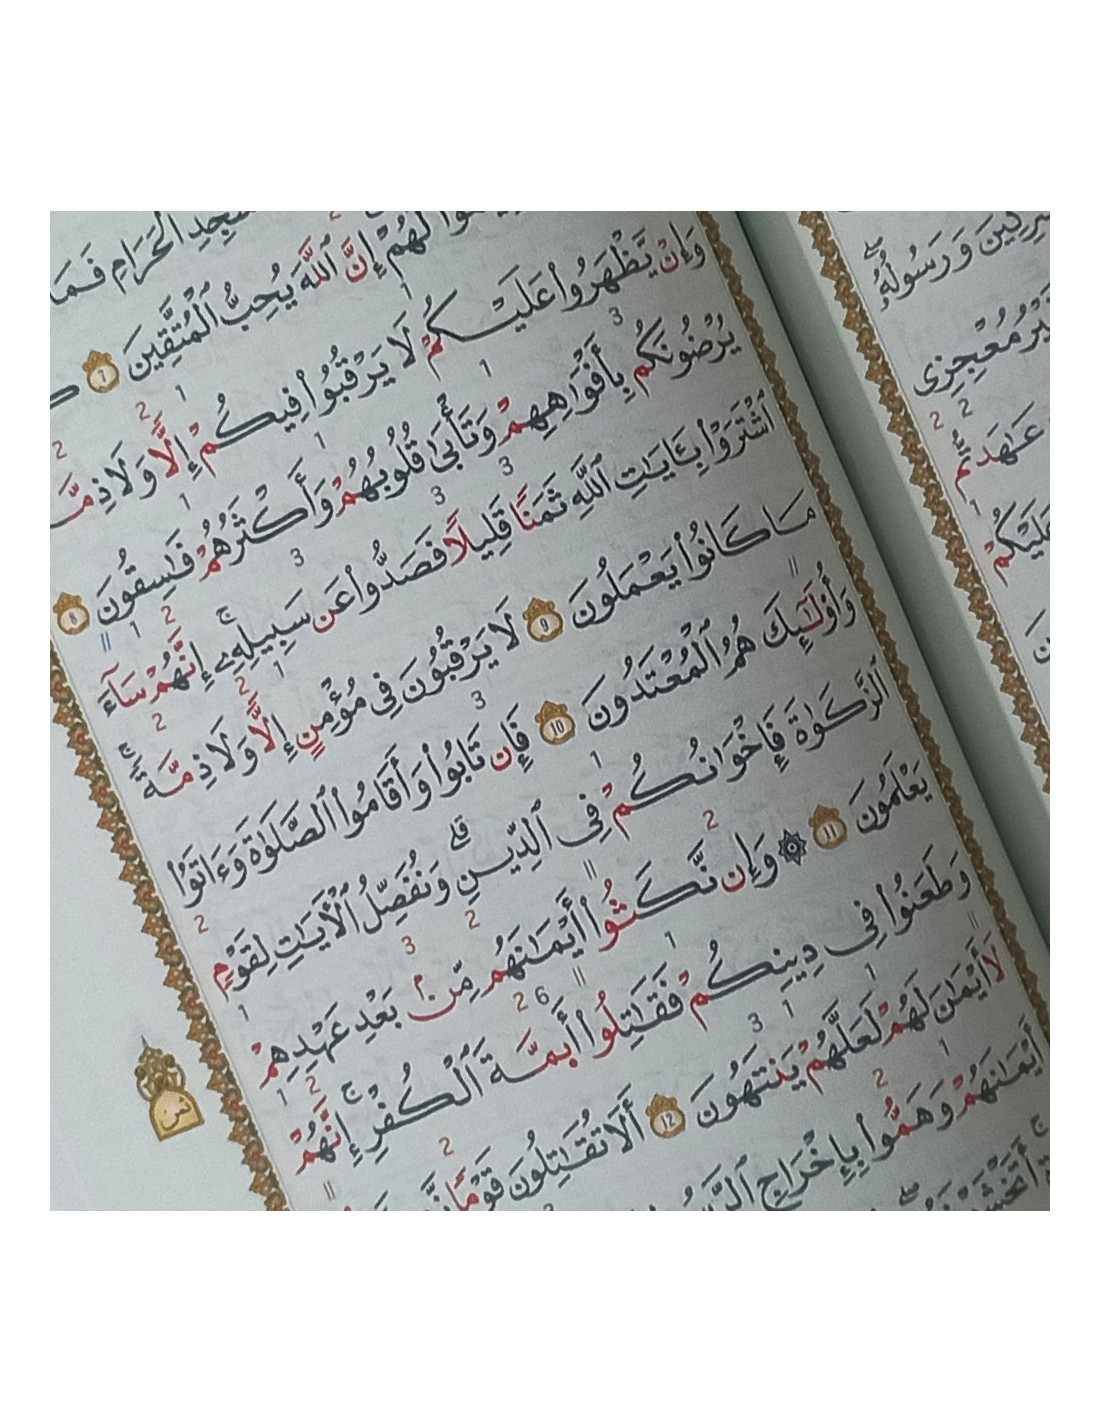 لَهُمْ إِنَّ ٱللَّهَ يُحِبُّ ٱلْمُتَّقِينَ 7
وَإِنْ يَظْهَرُوا۟ عَلَيْكُمْ لَا يَرْقُبُوا۟ فِيكُمْ إِلًّا وَلَا ذِمَّ
يُرْضُونَكُم بِأَفْوَٰهِهِمْ وَتَأْبَىٰ قُلُوبُهُمْ وَأَكْثَرُهُمْ فَٰسِقُونَ 8
ٱشْتَرَوْا۟ بِـَٔايَٰتِ ٱللَّهِ ثَمَنًا قَلِيلًا فَصَدُّوا۟ عَن سَبِيلِهِۦٓ ۚ إِنَّهُمْ سَآءَ
مَا كَانُوا۟ يَعْمَلُونَ 9 لَا يَرْقُبُونَ فِى مُؤْمِنٍ إِلًّا وَلَا ذِمَّةً ۚ
وَأُو۟لَٰٓئِكَ هُمُ ٱلْمُعْتَدُونَ 10 فَإِن تَابُوا۟ وَأَقَامُوا۟ ٱلصَّلَوٰةَ وَءَاتَوُا۟
ٱلزَّكَوٰةَ فَإِخْوَٰنُكُمْ فِى ٱلدِّينِ ۗ وَنُفَصِّلُ ٱلْءَايَٰتِ لِقَوْمٍ
يَعْلَمُونَ 11 ۞ وَإِن نَّكَثُوٓا۟ أَيْمَٰنَهُم مِّنۢ بَعْدِ عَهْدِهِمْ
وَطَعَنُوا۟ فِى دِينِكُمْ فَقَٰتِلُوٓا۟ أَئِمَّةَ ٱلْكُفْرِ ۚ إِنَّهُمْ
لَآ أَيْمَٰنَ لَهُمْ لَعَلَّهُمْ يَنتَهُونَ 12 أَلَا تُقَٰتِلُونَ قَوْمًا
أَيْمَٰنَهُمْ وَهَمُّوا۟ بِإِخْرَاجِ
وَرَسُولُهُۥ ۖ
مُعْجِزِى
عَٰهَدتُّم
عَلَيْكُمْ